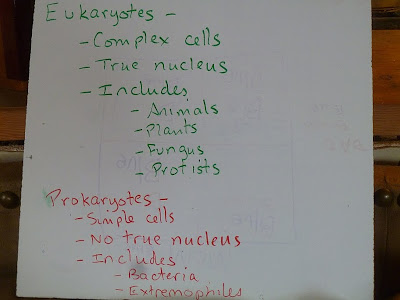 Eukaryotes -
- Complex cells
- True nucleus
- Includes
- Animals
- Plants
- Fungus
- Protists
Prokaryotes -
- Simple cells
- No true nucleus
- Includes
- Bacteria
- Extremophiles